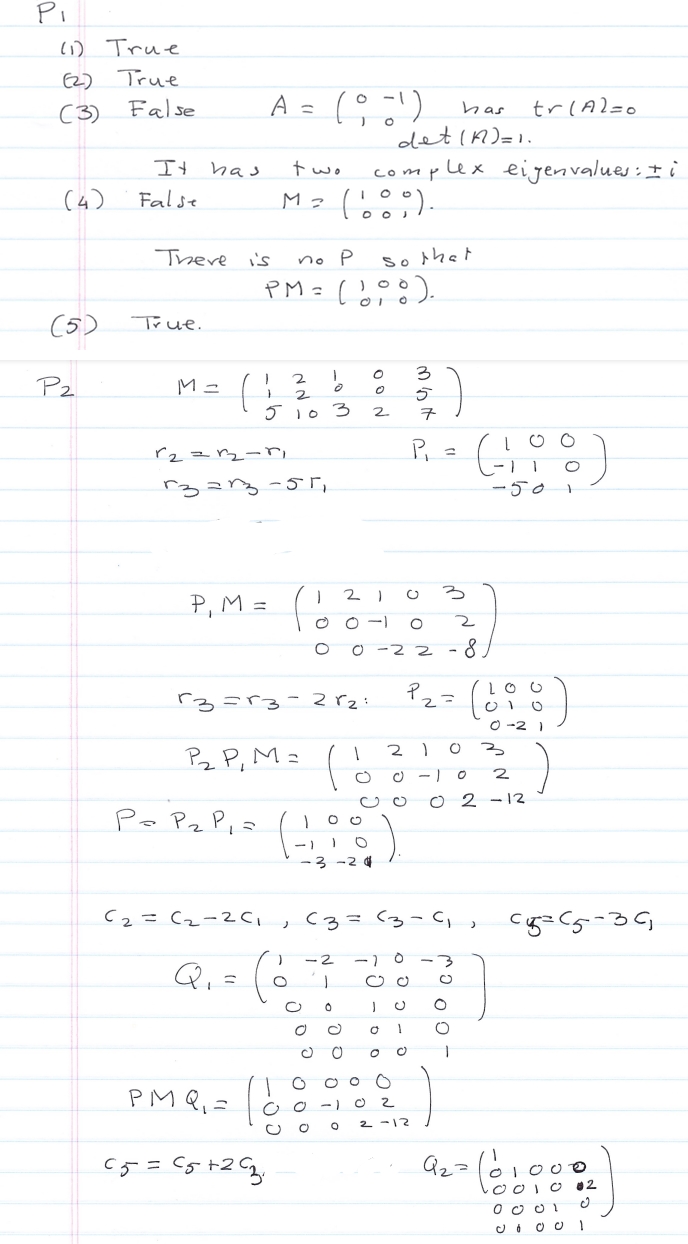 P1
(1) True
(2) True
(3) False A = ( 0 -1 ) has tr(A)=0
1 0
det(A)=1.
It has two complex eigenvalues: ± i
(4) False M = ( 1 0 0 ).
0 0 1
There is no P so that
PM = ( 1 0 0 ).
0 1 0
(5) True.
P2 M = ( 1 2 1 0 3 )
1 2 0 0 5
5 10 3 2 7
r2 = r2 - r1 P1 = ( 1 0 0 )
r3 = r3 - 5 r1 -1 1 0
-5 0 1
P1 M = ( 1 2 1 0 3 )
0 0 -1 0 2
0 0 -2 2 -8
r3 = r3 - 2 r2: P2 = ( 1 0 0 )
0 1 0
0 -2 1
P2 P1 M = ( 1 2 1 0 3 )
0 0 -1 0 2
0 0 0 2 -12
P = P2 P1 = ( 1 0 0 ).
-1 1 0
-3 -2 1
C2 = C2 - 2C1 , C3 = C3 - C1 , C5 = C5 - 3C1
Q1 = ( 1 -2 -1 0 -3 )
0 1 0 0 0
0 0 1 0 0
0 0 0 1 0
0 0 0 0 1
PMQ1 = ( 1 0 0 0 0 )
0 0 -1 0 2
0 0 0 2 -12
C5 = C5 + 2C3. Q2 = ( 1 )
0 1 0 0 0
0 0 1 0 2
0 0 0 1 0
0 0 0 0 1